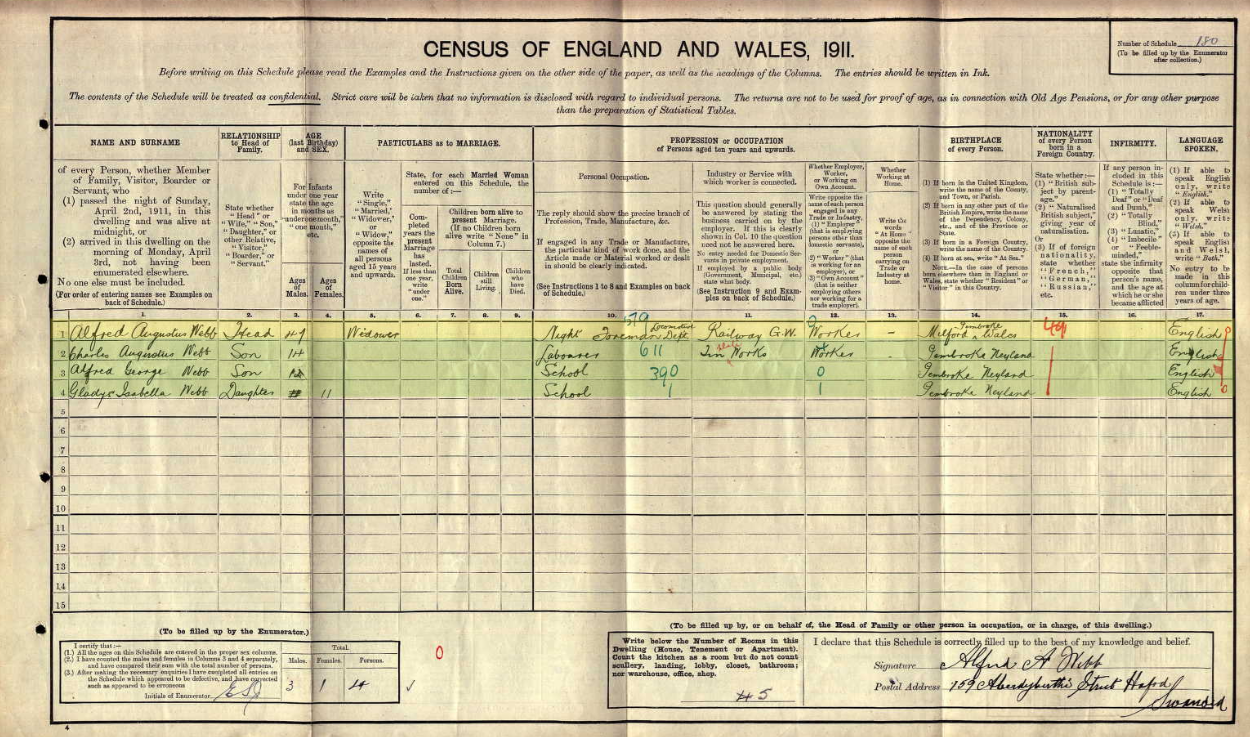 CENSUS OF ENGLAND AND WALES, 1911.
Number of Schedule 180
(To be filled up by the Enumerator
after collection.)
Before writing on this Schedule please read the Examples and the Instructions given on the other side of the paper, as well as the headings of the Columns. The entries should be written in Ink.
The contents of the Schedule will be treated as confidential. Strict care will be taken that no information is disclosed with regard to individual persons. The returns are not to be used for proof of age, as in connection with Old Age Pensions, or for any other purpose
than the preparation of Statistical Tables.
NAME AND SURNAME
of every Person, whether Member
of Family, Visitor, Boarder or
Servant, who
(1) passed the night of Sunday,
April 2nd, 1911, in this
dwelling and was alive at
midnight, or
(2) arrived in this dwelling on the
morning of Monday, April
3rd, not having been
enumerated elsewhere.
No one else must be included.
(For order of entering names see Examples on
back of Schedule.)
RELATIONSHIP
to Head of
Family.
State whether
"Head" or
"Wife," "Son,"
"Daughter," or
other Relative,
"Visitor,"
"Boarder," or
"Servant."
AGE
(last Birthday)
and SEX.
For Infants
under one year
state the age
in months as
"under one month,"
"one month,"
etc.
Ages
of
Males.
Ages
of
Females.
PARTICULARS as to MARRIAGE.
Write
"Single,"
"Married,"
"Widower,"
or
"Widow,"
opposite the
names of
all persons
aged 15 years
and upwards.
State, for each Married Woman
entered on this Schedule, the
number of:—
Completed
years the
present
Marriage
has
lasted.
If less than
one year
write
"under
one."
Children born alive to
present Marriage.
(If no children born
alive write "None" in
Column 7.)
Total
Children
Born
Alive.
Children
still
Living.
Children
who
have
Died.
PROFESSION or OCCUPATION
of Persons aged ten years and upwards.
Personal Occupation.
The reply should show the precise branch of
Profession, Trade, Manufacture, &c.
If engaged in any Trade or Manufacture,
the particular kind of work done, and the
Article made or Material worked or dealt
in should be clearly indicated.
(See Instructions 1 to 8 and Examples on back
of Schedule.)
Industry or Service with
which worker is connected.
This question should generally
be answered by stating the
business carried on by the
employer. If this is clearly
shown in Col. 10 the question
need not be answered here.
No entry needed for Domestic Servants
in private employment.
If employed by a public body
(Government, Municipal, etc.)
state what body.
(See Instruction 9 and Examples
on back of Schedule.)
Whether Employer,
Worker,
or Working on
Own Account.
Whether
Working at
Home.
Write the
words
"At Home"
opposite the
name of each
person
carrying on
Trade or
Industry at
home.
BIRTHPLACE
of every person.
NATIONALITY
of every Person
born in a
Foreign Country.
State whether:—
(1) "British subject
by parentage."
(2) "Naturalised
British subject,"
giving year of
naturalisation.
Or
(3) If of foreign
nationality,
state whether
"French,"
"German,"
"Russian,"
etc.
INFIRMITY.
If any person included
in this
Schedule is:—
(1) "Totally
Deaf" or "Deaf
and Dumb,"
(2) "Totally
Blind,"
(3) "Lunatic,"
(4) "Imbecile"
or "Feeble-minded,"
state the infirmity
opposite that
person's name,
and the age at
which he or she
became afflicted
LANGUAGE
SPOKEN.
1. 2. 3. 4. 5. 6. 7. 8. 9. 10. 11. 12. 13. 14. 15. 16. 17.
1 Alfred Augustus Webb Head 47 Widower Night Foreman Locomotive Dept 579 Railway G.W. Worker – Milford Pembroke Wales 49 English
2 Charles Augustus Webb Son 14 Labourer 611 Tin Plate Works Worker Pembroke Neyland English
3 Alfred George Webb Son School 390 0 Pembroke Neyland English
4 Gladys Isabella Webb Daughter 11 School 1 1 Pembroke Neyland English
5
6
7
8
9
10
11
12
13
14
15
(To be filled up by the Enumerator.)
I certify that:—
(1.) All the ages on this Schedule are entered in the proper sex columns.
(2.) I have counted the males and females in Columns 3 and 4 separately,
and have compared their sum with the total number of persons.
(3.) After making the necessary enquiries I have completed all entries on
the Schedule which appeared to be defective, and have corrected
such as appeared to be erroneous
Initials of Enumerator
Total.
Males. Females. Persons.
3 1 4
0
(To be filled up by, or on behalf of, the Head of Family or other person in occupation, or in charge, of this dwelling.)
Write below the Number of Rooms in this
Dwelling (House, Tenement or Apartment).
Count the kitchen as a room but do not count
scullery, landing, lobby, closet, bathroom;
nor warehouse, office, shop.
5
I declare that this Schedule is correctly filled up to the best of my knowledge and belief.
Signature Alfred A Webb
Postal Address 159 Aberdyberthi Street Hafod
Swansea
4